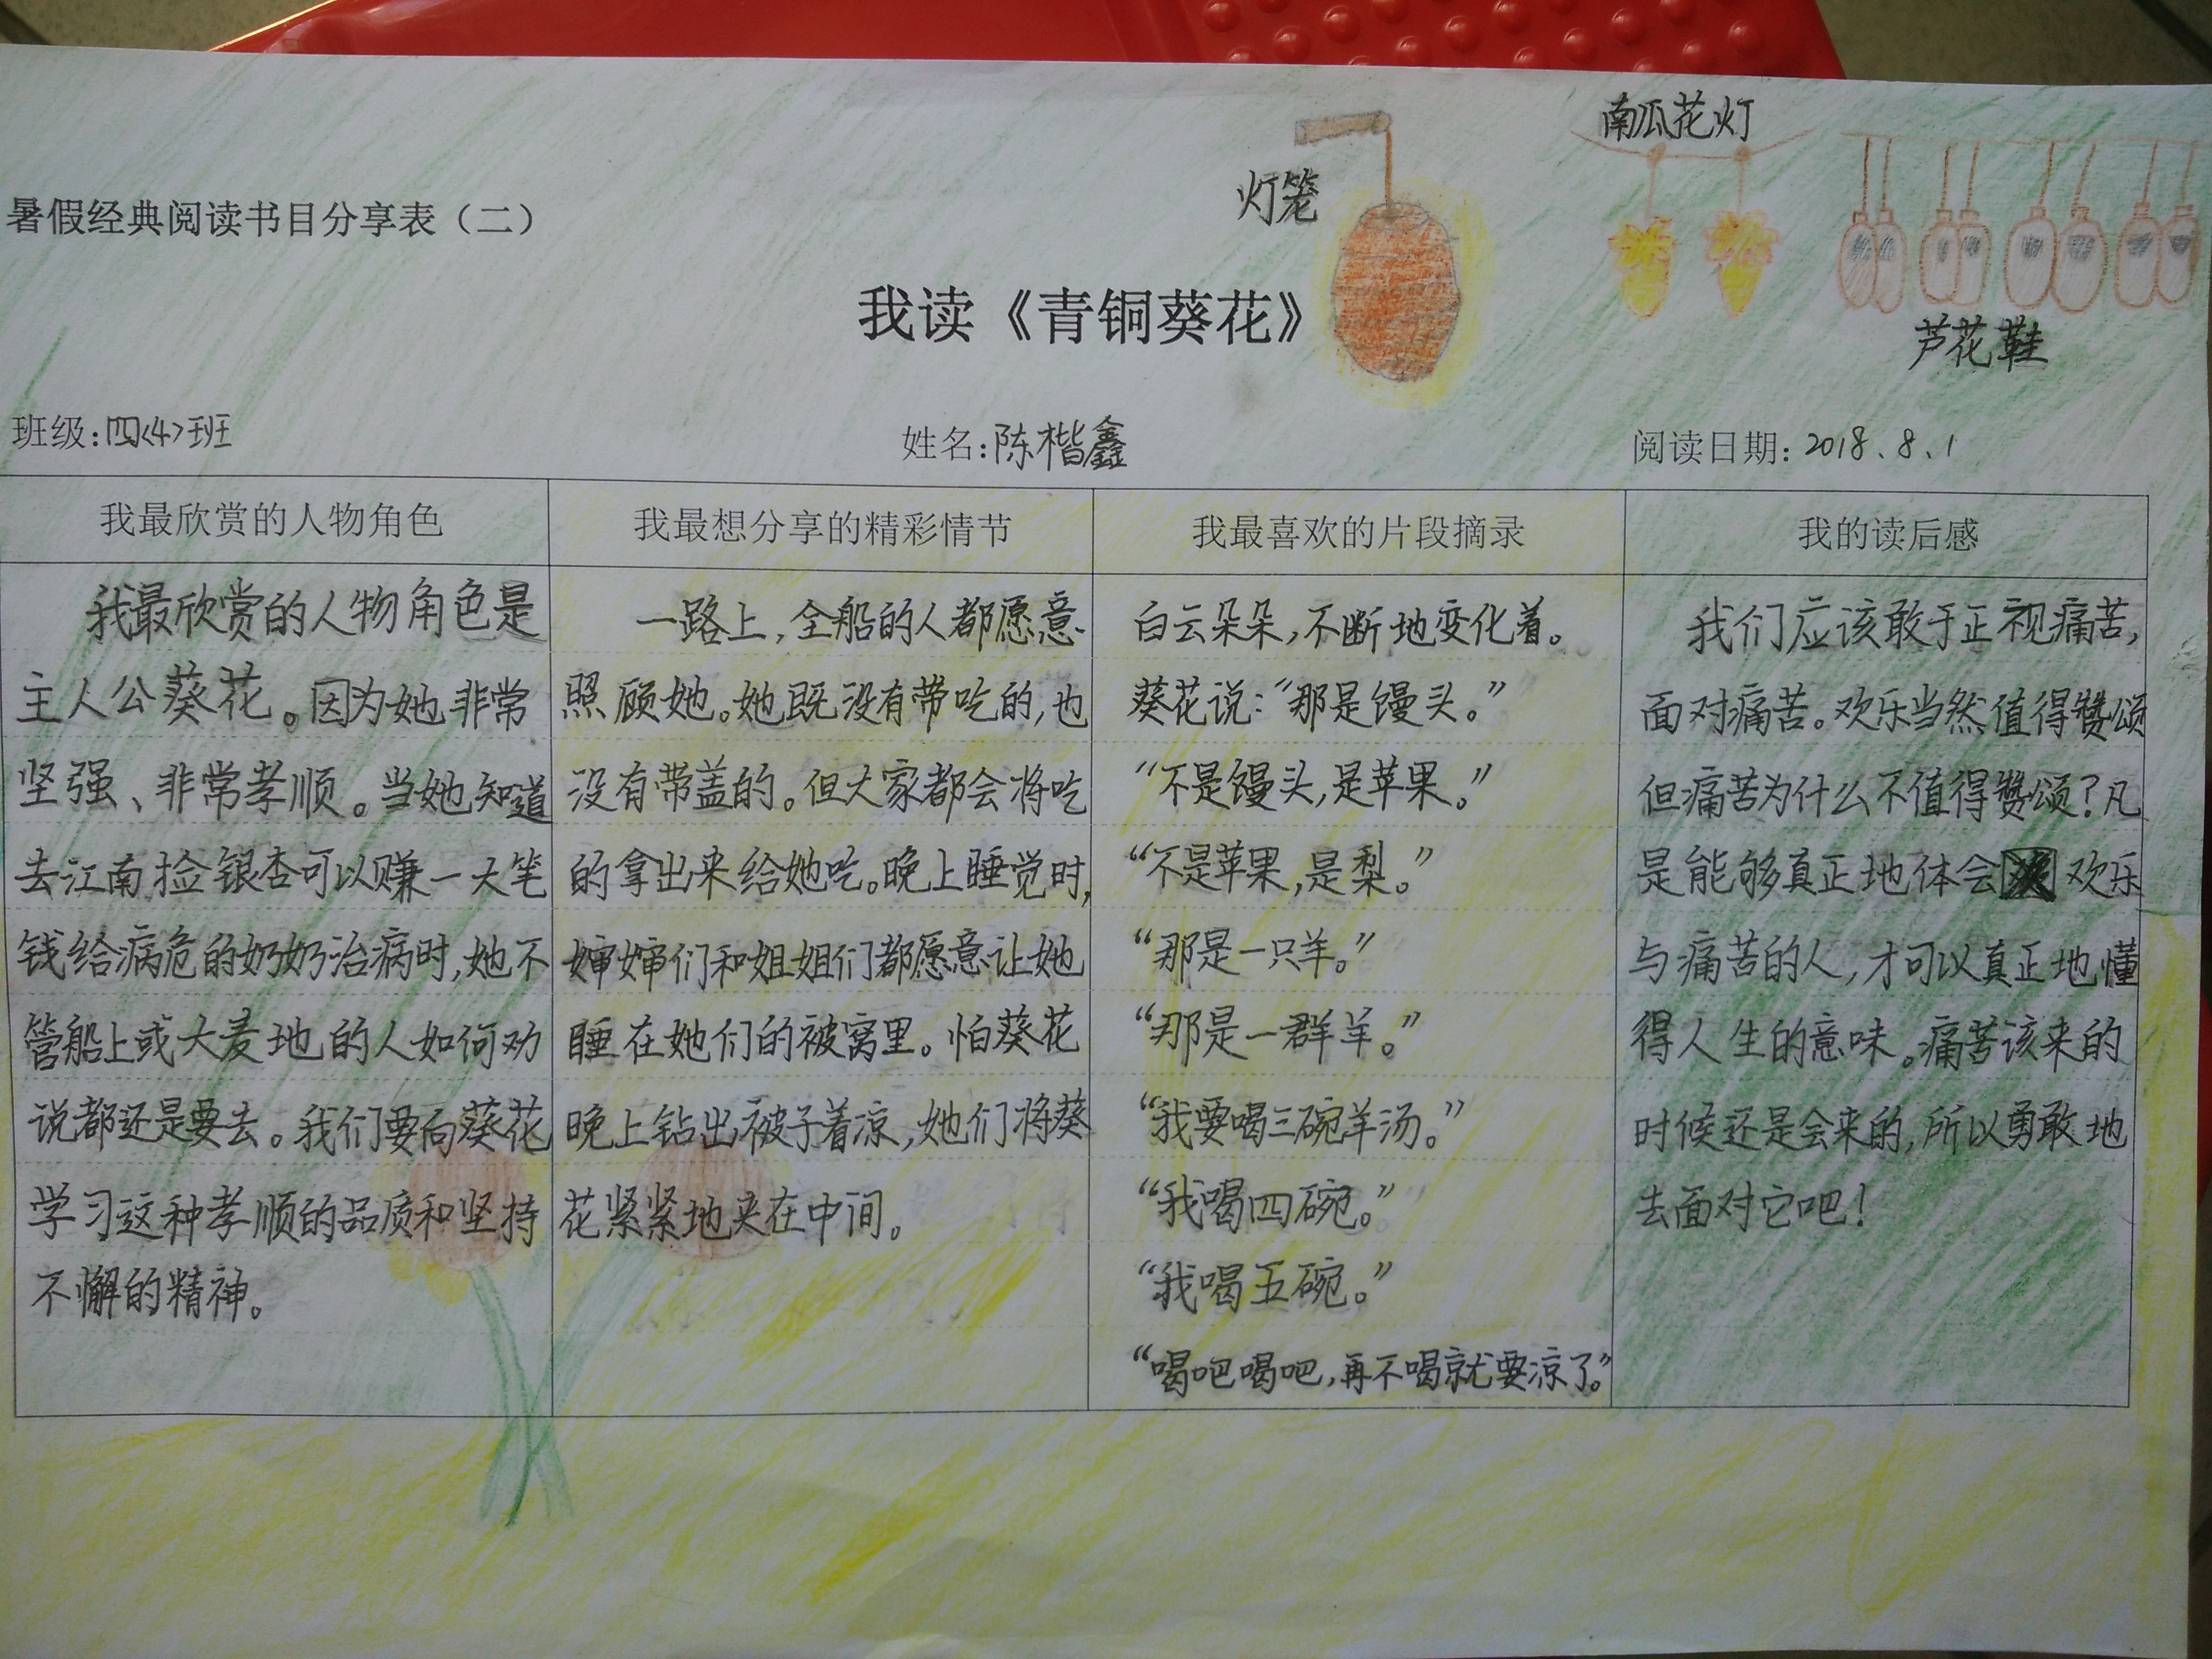 南瓜花灯
灯笼
暑假经典阅读书目分享表（二）
我读《青铜葵花》
芦花鞋
班级:四<4>班
姓名:陈楷鑫
阅读日期: 2018、8、1
我最欣赏的人物角色
我最欣赏的人物角色是
主人公葵花。因为她非常
坚强、非常孝顺。当她知道
去江南捡银杏可以赚一大笔
钱给病危的奶奶治病时,她不
管船上或大麦地的人如何劝
说都还是要去。我们要向葵花
学习这种孝顺的品质和坚持
不懈的精神。
我最想分享的精彩情节
一路上,全船的人都愿意
照顾她。她既没有带吃的,也
没有带盖的。但大家都会将吃
的拿出来给她吃。晚上睡觉时,
婶婶们和姐姐们都愿意让她
睡在她们的被窝里。怕葵花
晚上钻出被子着凉,她们将葵
花紧紧地夹在中间。
我最喜欢的片段摘录
白云朵朵,不断地变化着。
葵花说:“那是馒头。”
“不是馒头,是苹果。”
“不是苹果,是梨。”
“那是一只羊。”
“那是一群羊。”
“我要喝三碗羊汤。”
“我喝四碗。”
“我喝五碗。”
“喝吧喝吧,再不喝就要凉了。”
我的读后感
我们应该敢于正视痛苦,
面对痛苦。欢乐当然值得赞颂
但痛苦为什么不值得赞颂?凡
是能够真正地体会欢乐
与痛苦的人,才可以真正地懂
得人生的意味。痛苦该来的
时候还是会来的,所以勇敢地
去面对它吧!